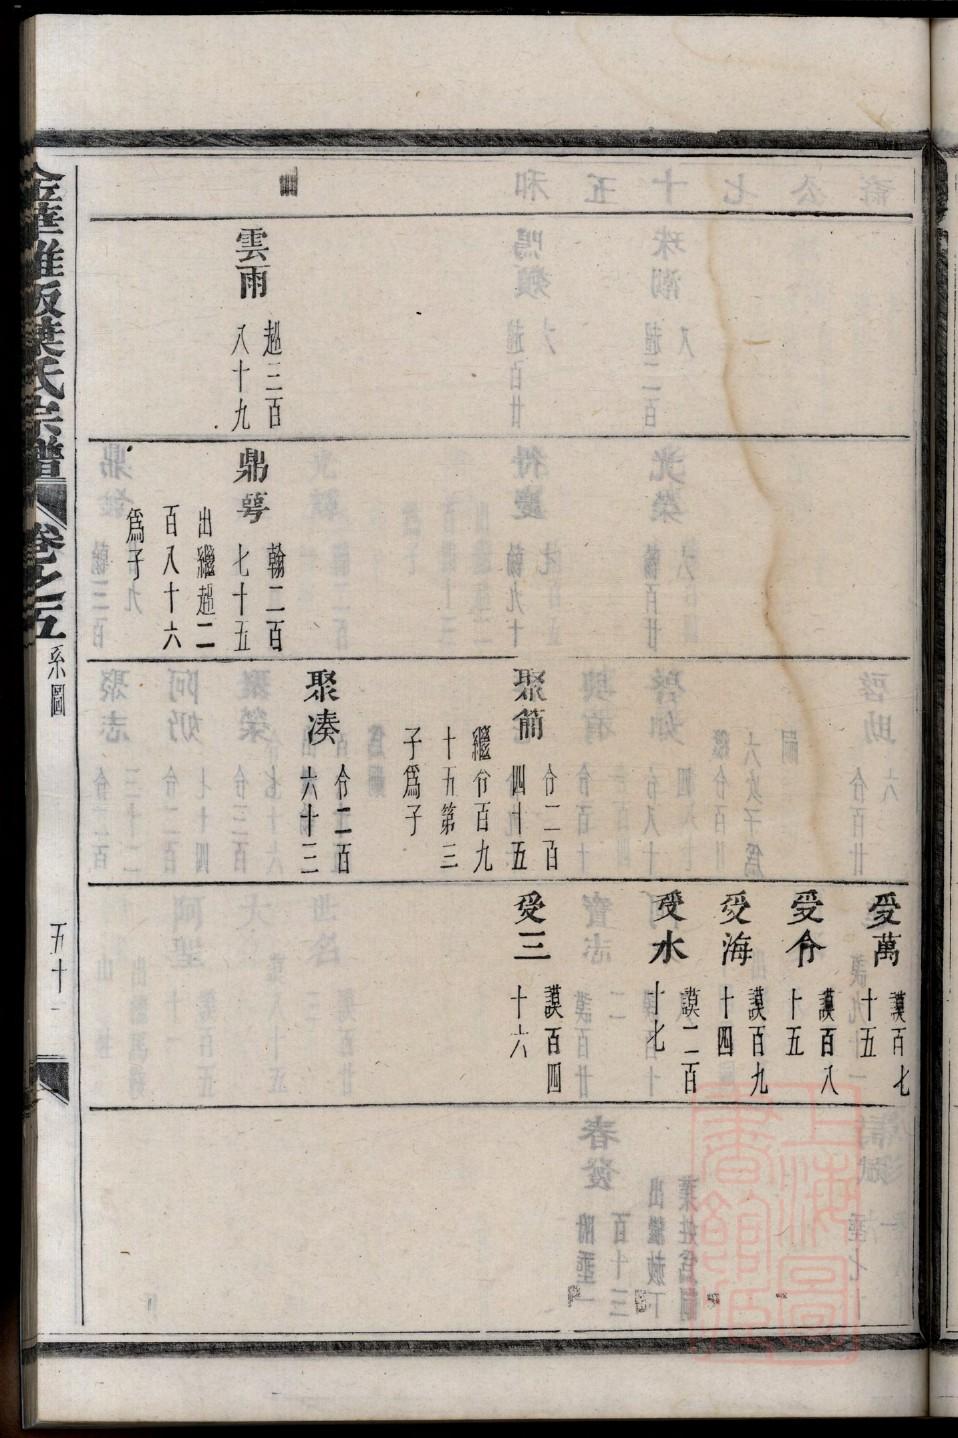 雲雨
趂三百
八十九
鼎萼
翰二百
七十五
出繼趂二
百八十六
爲子
聚簡
佾二百
四十五
繼佾百九
十五第三
子爲子
聚凑
佾二百
六十三
受萬
謨百七
十五
受佾
謨百八
十五
受海
謨百九
十四
受水
謨二百
十七
受三
謨百四
十六
金華雅畈葉氏宗譜
卷之五
系圖
五十一
上海圖書館藏